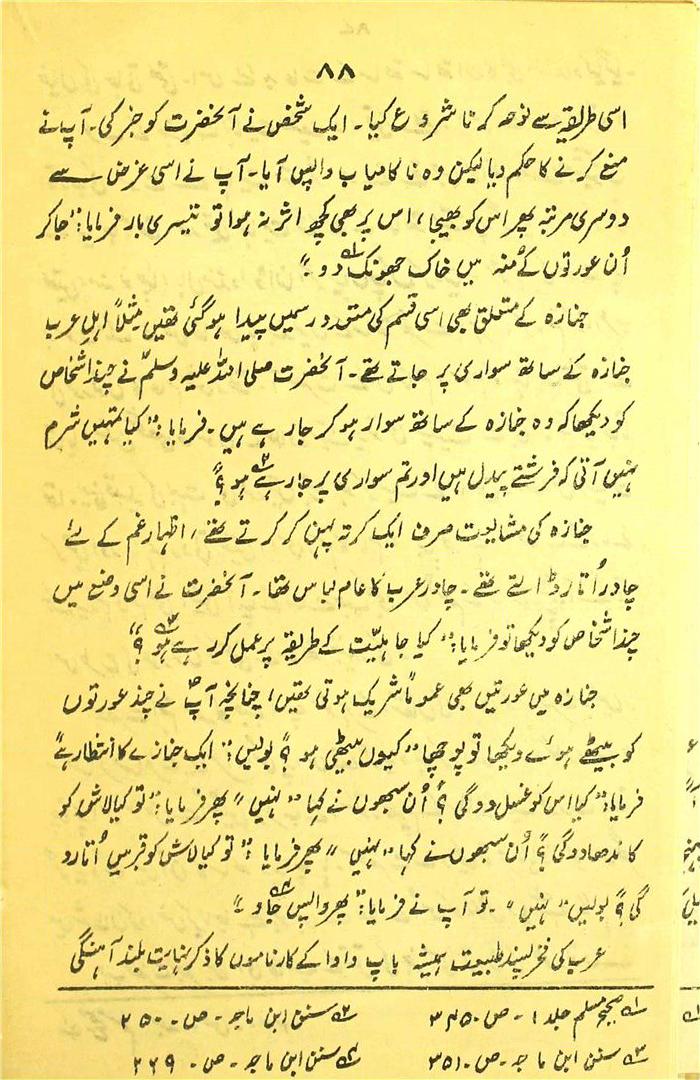 ۸۸
اسی طریقہ سے نوحہ کرنا شروع کیا۔ ایک شخص نے آنحضرت کو خبر کی۔ آپ نے
منع کرنے کا حکم دیا لیکن وہ ناکامیاب واپس آیا۔ آپ نے اسی غرض سے
دوسری مرتبہ پھر اس کو بھیجا، اس پر بھی کچھ اثر نہ ہوا تو تیسری بار فرمایا: "جاکر
اُن عورتوں کے منہ میں خاک جھونک دو۔"
جنازہ کے متعلق بھی اسی قسم کی متعدد رسمیں پیدا ہوگئی تھیں مثلاً اہل عرب
جنازہ کے ساتھ سواری پر جاتے تھے۔ آنحضرت صلی اللہ علیہ وسلم نے چند اشخاص
کو دیکھا کہ وہ جنازہ کے ساتھ سوار ہو کر جارہے ہیں۔ فرمایا: "کیا تمہیں شرم
نہیں آتی کہ فرشتے پیدل ہیں اور تم سواری پر جارہے ہو؟"
جنازہ کی مشایعت صرف ایک کرتہ پہن کر کرتے تھے، اظہار غم کے لئے
چادر اُتار ڈالتے تھے۔ چادر عرب کا عام لباس تھا۔ آنحضرت نے اسی وضع میں
چند اشخاص کو دیکھا تو فرمایا: "کیا جاہلیّت کے طریقہ پر عمل کررہے ہو؟"
جنازہ میں عورتیں بھی عموماً شریک ہوتی تھیں، چنانچہ آپؐ نے چند عورتوں
کو بیٹھے ہوئے دیکھا تو پوچھا "کیوں بیٹھی ہو؟" بولیں: "ایک جنازے کا انتظار ہے"
فرمایا: "کیا اس کو غسل دوگی؟" اُن سبھوں نے کہا "نہیں" پھر فرمایا: "تو کیا لاش کو
کاندھا دوگی؟" اُن سبھوں نے کہا "نہیں" پھر فرمایا: "تو کیا لاش کو قبر میں اُتارو
گی؟" بولیں "نہیں"۔ تو آپ نے فرمایا: "پھر واپس جاو۔"
عرب کی فخر پسند طبیعت ہمیشہ باپ دادا کے کارناموں کا ذکر نہایت بلند آہنگی
۱؎ صحیح مسلم جلد ۱ - ص۔ ۳۴۵ ۲؎ سنن ابن ماجہ - ص۔ ۲۵۰
۳؎ سنن ابن ماجہ - ص۔ ۳۵۱ ۴؎ سنن ابن ماجہ - ص۔ ۲۲۹